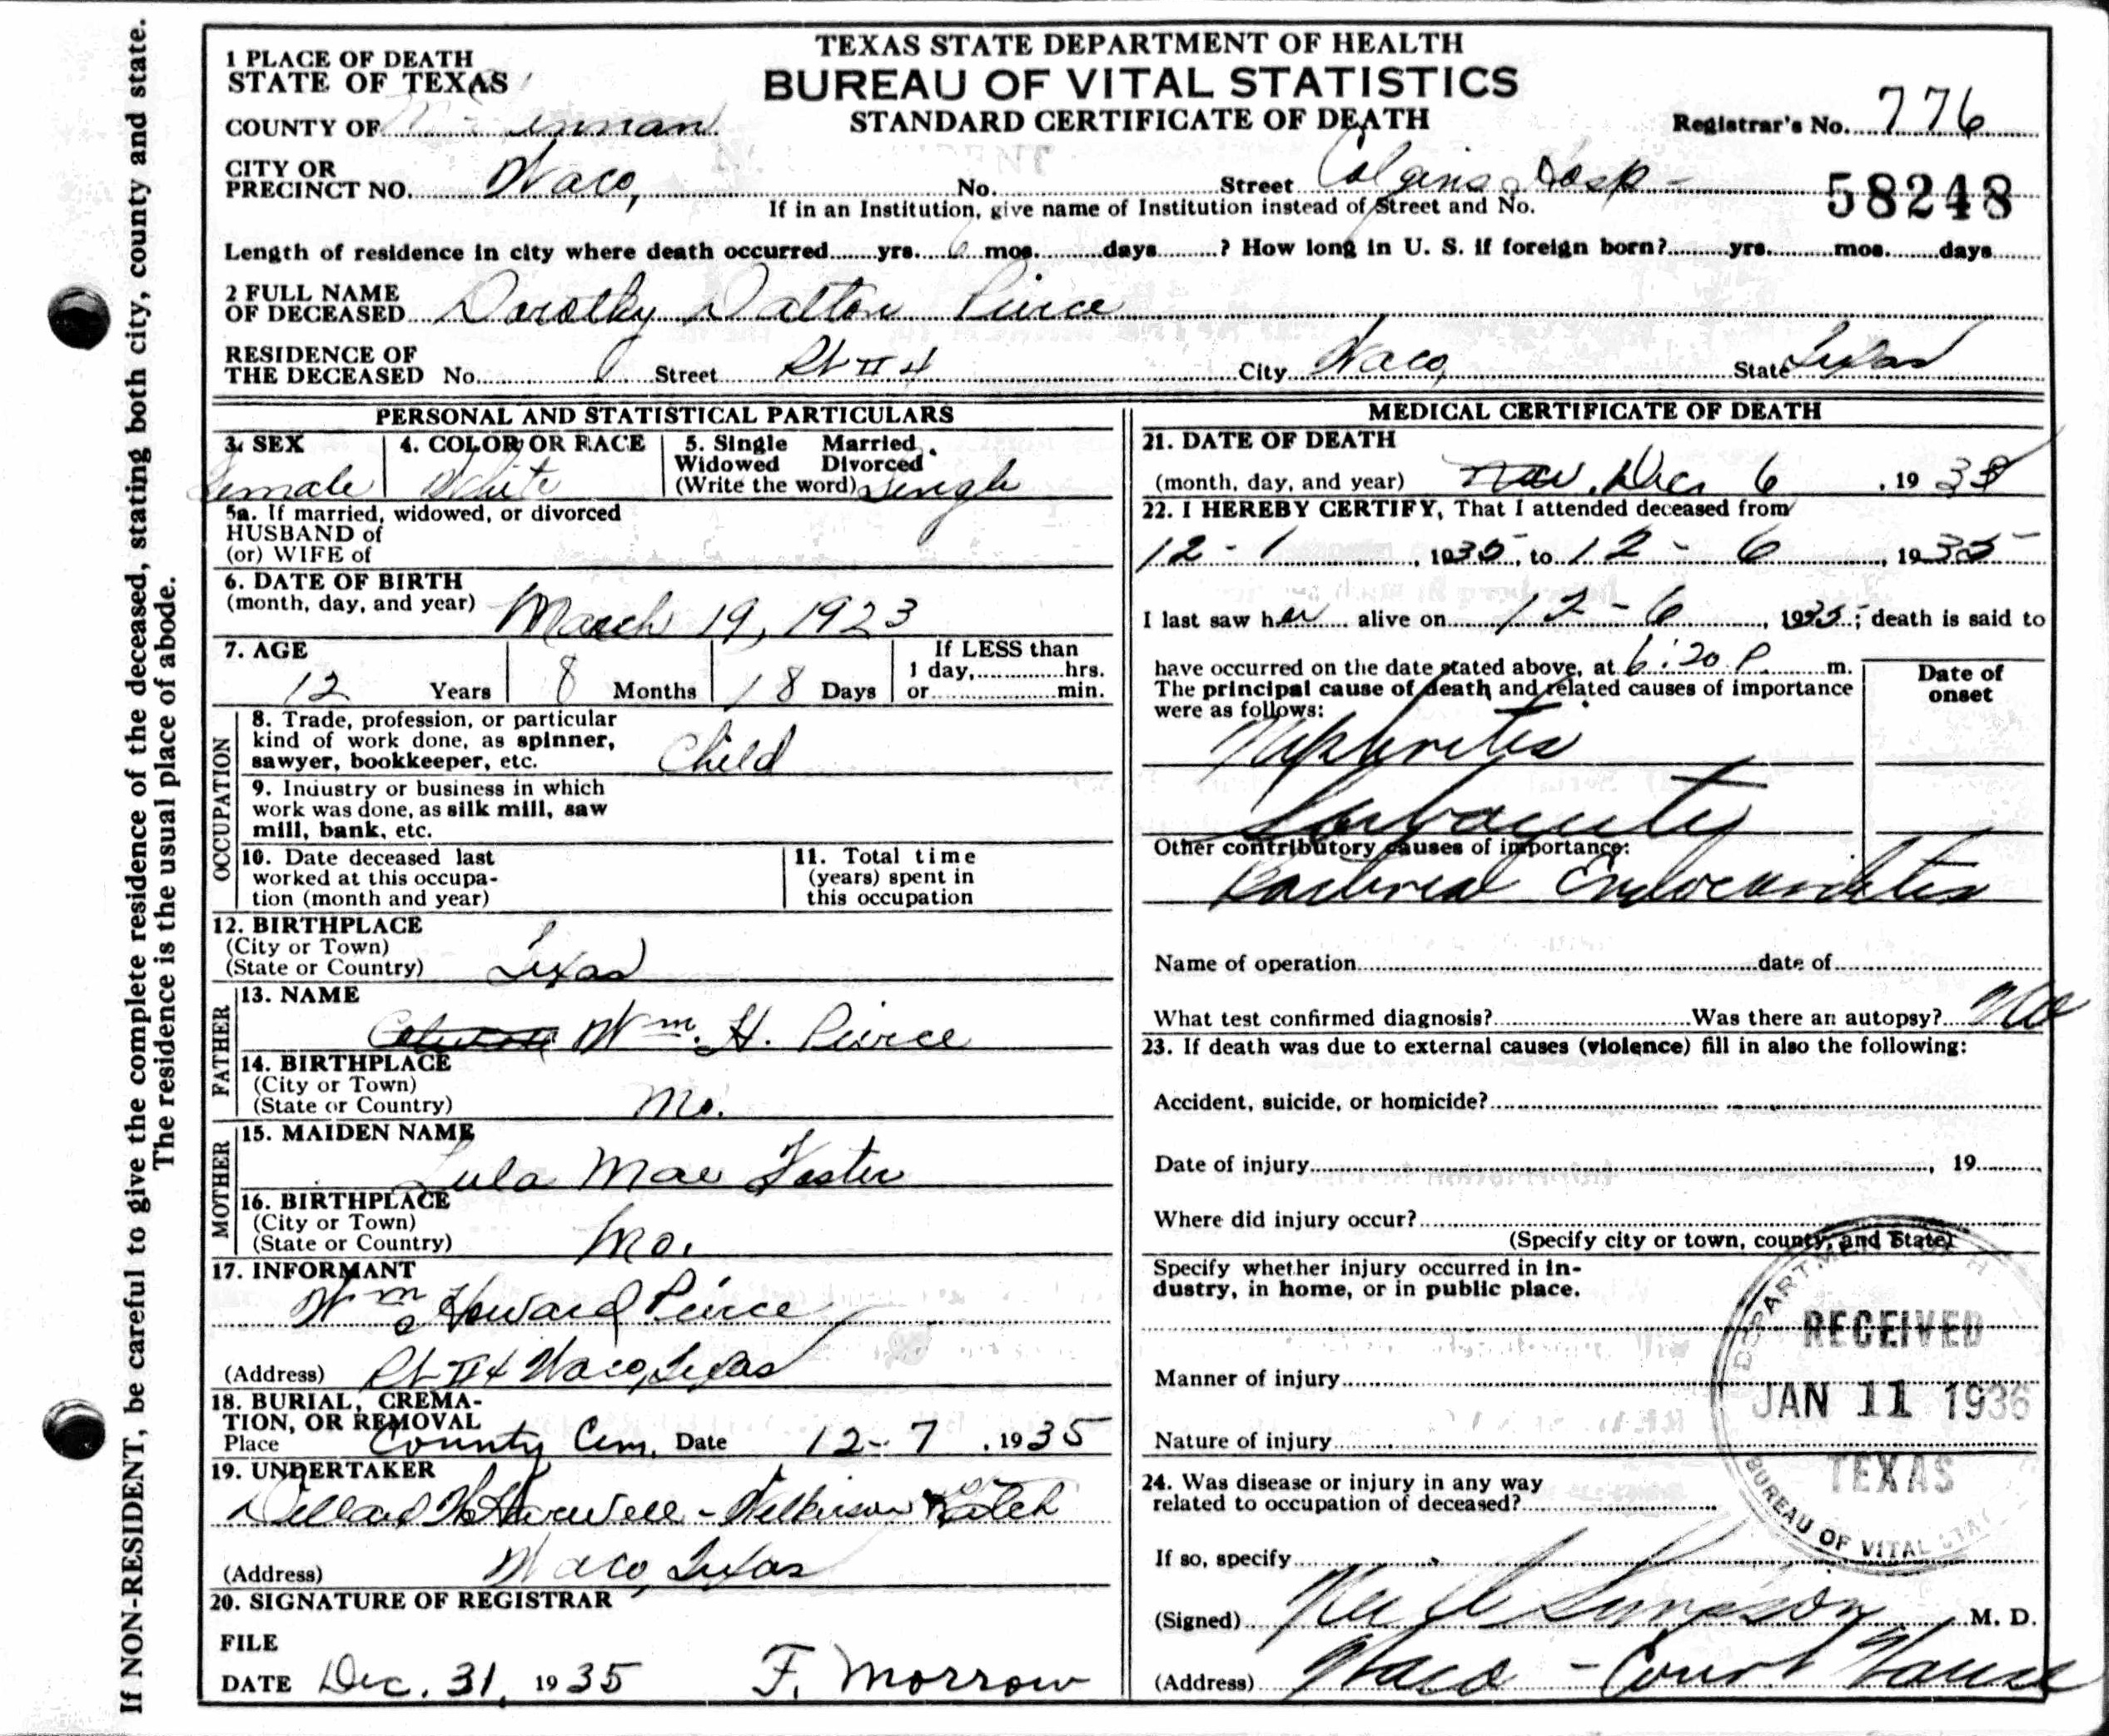 If NON-RESIDENT, be careful to give the complete residence of the deceased, stating both city, county and state.
The residence is the usual place of abode.
TEXAS STATE DEPARTMENT OF HEALTH
BUREAU OF VITAL STATISTICS
STANDARD CERTIFICATE OF DEATH
1 PLACE OF DEATH
STATE OF TEXAS
COUNTY OF
Registrar's No. 776
CITY OR
PRECINCT NO. Waco, No. Street Colgins Hosp -
If in an Institution, give name of Institution instead of Street and No.
58248
Length of residence in city where death occurred yrs. 6 mos. days ? How long in U. S. if foreign born? yrs. mos. days
2 FULL NAME
OF DECEASED Dorothy Dalton Pierce
RESIDENCE OF
THE DECEASED No. Street Rt #4 City Waco, State Texas
PERSONAL AND STATISTICAL PARTICULARS
3. SEX
Female
4. COLOR OR RACE
White
5. Single Married
Widowed Divorced
(Write the word) Single
5a. If married, widowed, or divorced
HUSBAND of
(or) WIFE of
6. DATE OF BIRTH
(month, day, and year) March 19, 1923
7. AGE
12 Years 8 Months 18 Days
If LESS than
1 day, hrs.
or min.
OCCUPATION
8. Trade, profession, or particular
kind of work done, as spinner,
sawyer, bookkeeper, etc. Child
9. Industry or business in which
work was done, as silk mill, saw
mill, bank, etc.
10. Date deceased last
worked at this occupa-
tion (month and year)
11. Total time
(years) spent in
this occupation
12. BIRTHPLACE
(City or Town)
(State or Country) Texas
FATHER
13. NAME
Wm. H. Pierce
14. BIRTHPLACE
(City or Town)
(State or Country) Mo.
MOTHER
15. MAIDEN NAME
Lula Mae Foster
16. BIRTHPLACE
(City or Town)
(State or Country) Mo.
17. INFORMANT
Wm Howard Pierce
(Address) Rt #4 Waco, Texas
18. BURIAL, CREMA-
TION, OR REMOVAL
Place County Cem. Date 12-7, 1935
19. UNDERTAKER
Harwell - Wilkerson
(Address) Waco, Texas
20. SIGNATURE OF REGISTRAR
FILE
DATE Dec. 31, 1935 F. Morrow
MEDICAL CERTIFICATE OF DEATH
21. DATE OF DEATH
(month, day, and year) Nov. Dec 6, 193
22. I HEREBY CERTIFY, That I attended deceased from
12-1, 1935, to 12-6, 1935
I last saw her alive on 12-6, 1935; death is said to
have occurred on the date stated above, at 6:20 P. m.
The principal cause of death and related causes of importance
were as follows:
Date of
onset
Nephritis
Other contributory causes of importance:
Bacterial Endocarditis
Name of operation date of
What test confirmed diagnosis? Was there an autopsy? No
23. If death was due to external causes (violence) fill in also the following:
Accident, suicide, or homicide?
Date of injury, 19
Where did injury occur?
(Specify city or town, county, and State)
Specify whether injury occurred in in-
dustry, in home, or in public place.
Manner of injury
Nature of injury
24. Was disease or injury in any way
related to occupation of deceased?
If so, specify
(Signed) Simpson, M. D.
(Address) Waco - Court House
DEPARTMENT OF H
RECEIVED
JAN 11 1936
TEXAS
BUREAU OF VITAL STAT